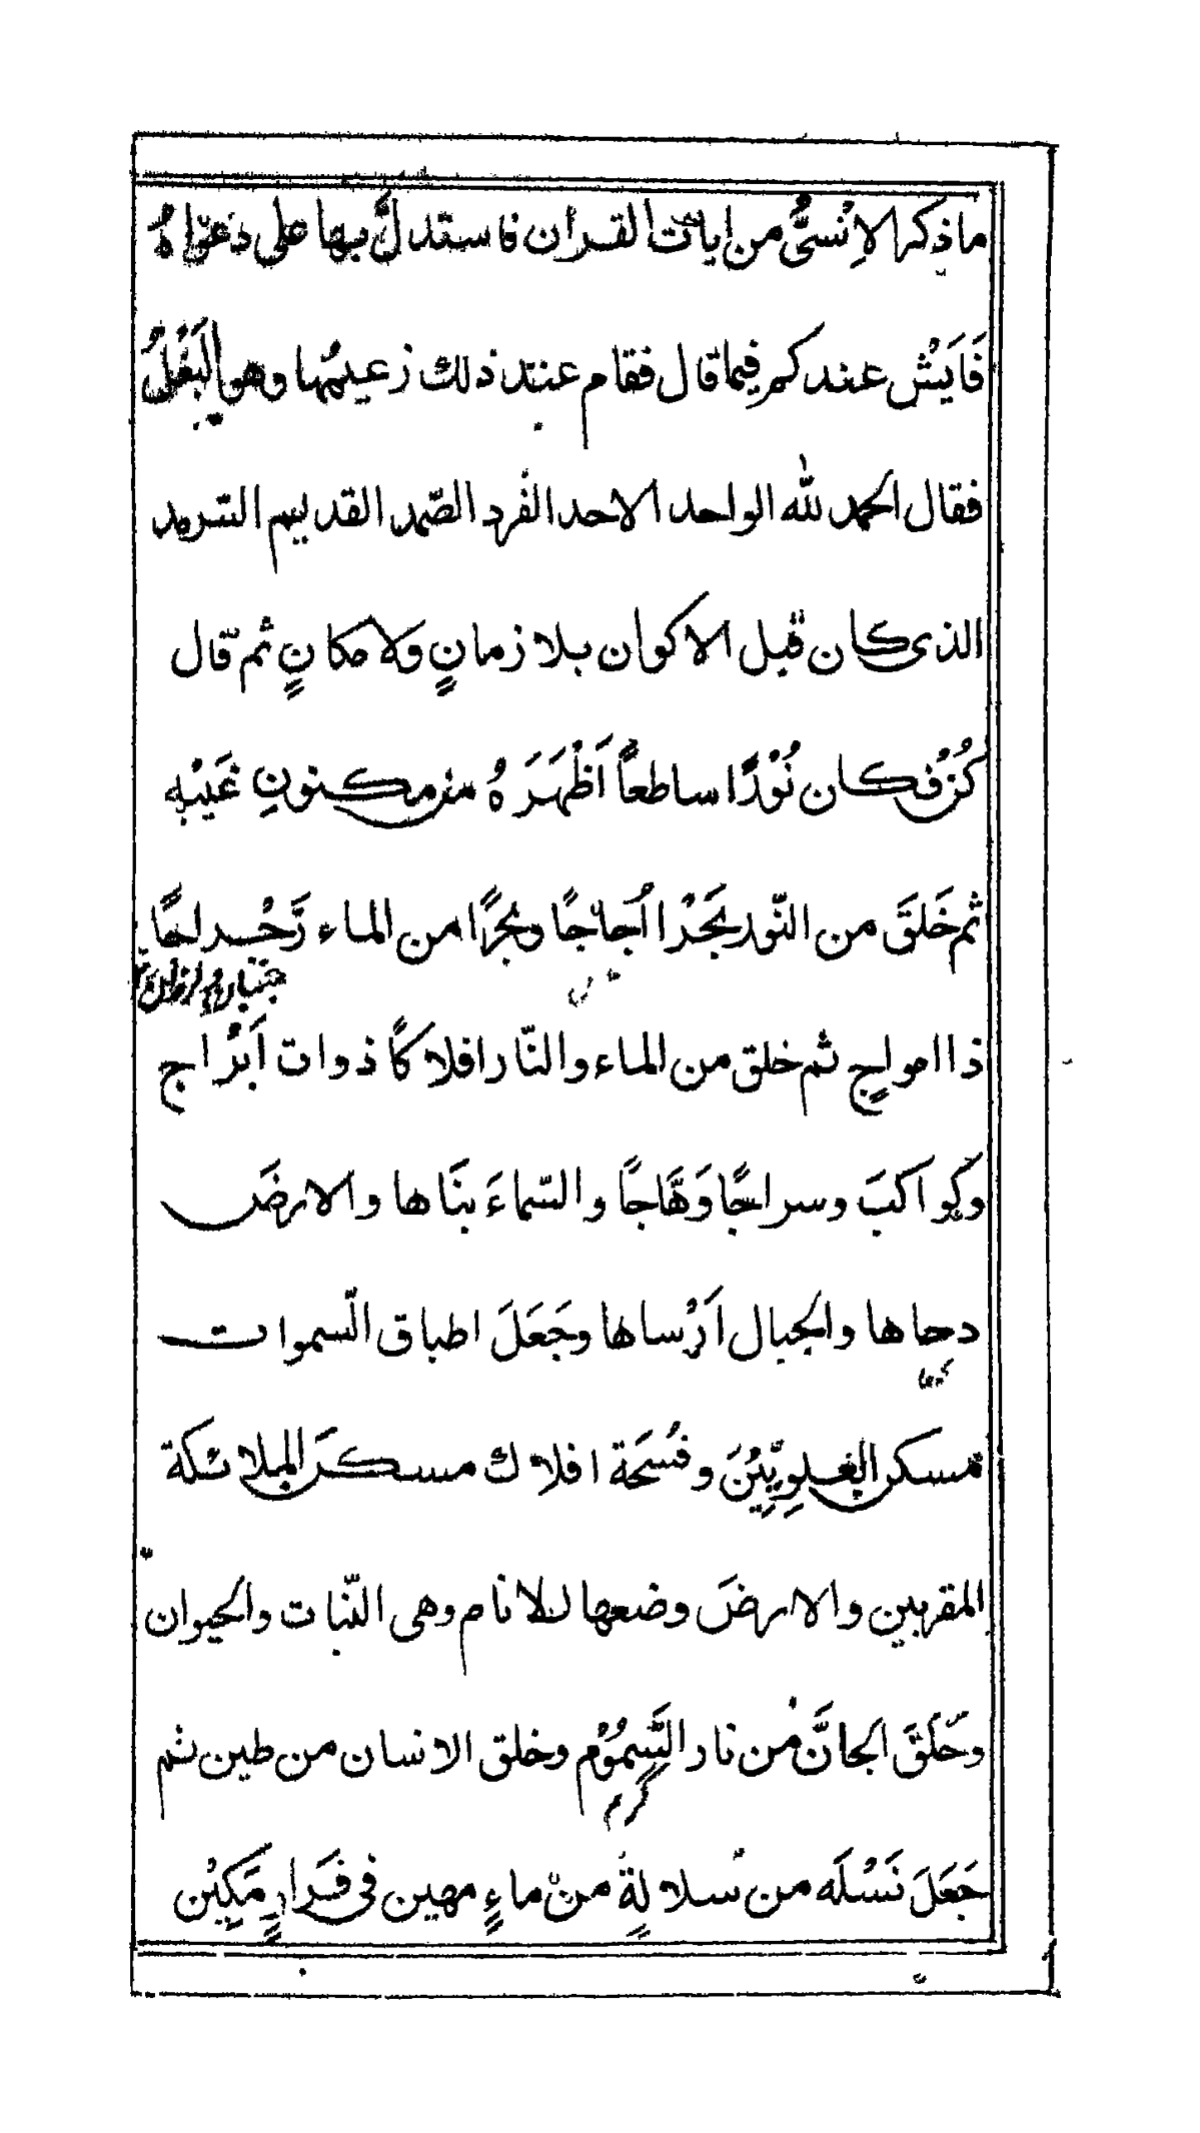 ما ذكر الاِنْسىُّ من ايات القران فاستدلَّ بها على دَعْوَاهُ
فَاَيْش عندكم فيما قال فقام عند ذلك زعيمُها وهو الْبَغْلُ
فقال الحمد لله الواحد الاحد الفرد الصّمد القديم السّرمد
الذى كان قبل الاكوان بلا زمانٍ ولا مكانٍ ثم قال
كُنْ فكان نُوْرًا ساطعاً اَظْهَرَهُ من مكنونِ غَيْبِه
ثم خَلَقَ من النّور بَحْرا اُجاجًا وبحرًا من الماء رَجْراجًا
ذا امواجٍ ثم خلق من الماء والنّار افلاكًا ذوات اَبْرَاج
وكواكبَ وسراجًا وَهَّاجًا والسّماءَ بنَاها والارضَ
دحاها والجبال اَرْساها وجَعَلَ اطباق السّموات
مسكن العلوِيِّيْنَ وفُسْحَة افلاك مسكنَ الملائكة
المقربين والارضَ وضعها للانام وهى النّبات والحيوان
وخَلَقَ الجانَّ من نار السَّمُوْم وخلق الانسان من طين ثم
گرم
جَعَلَ نَسْلَه من سلالةٍ منْ ماءٍ مهين فى قَرَارٍ مَّكِيْن